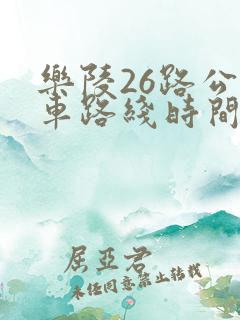 樂陵26路公
車路綫時間
屈亞君
未经同意禁止转载